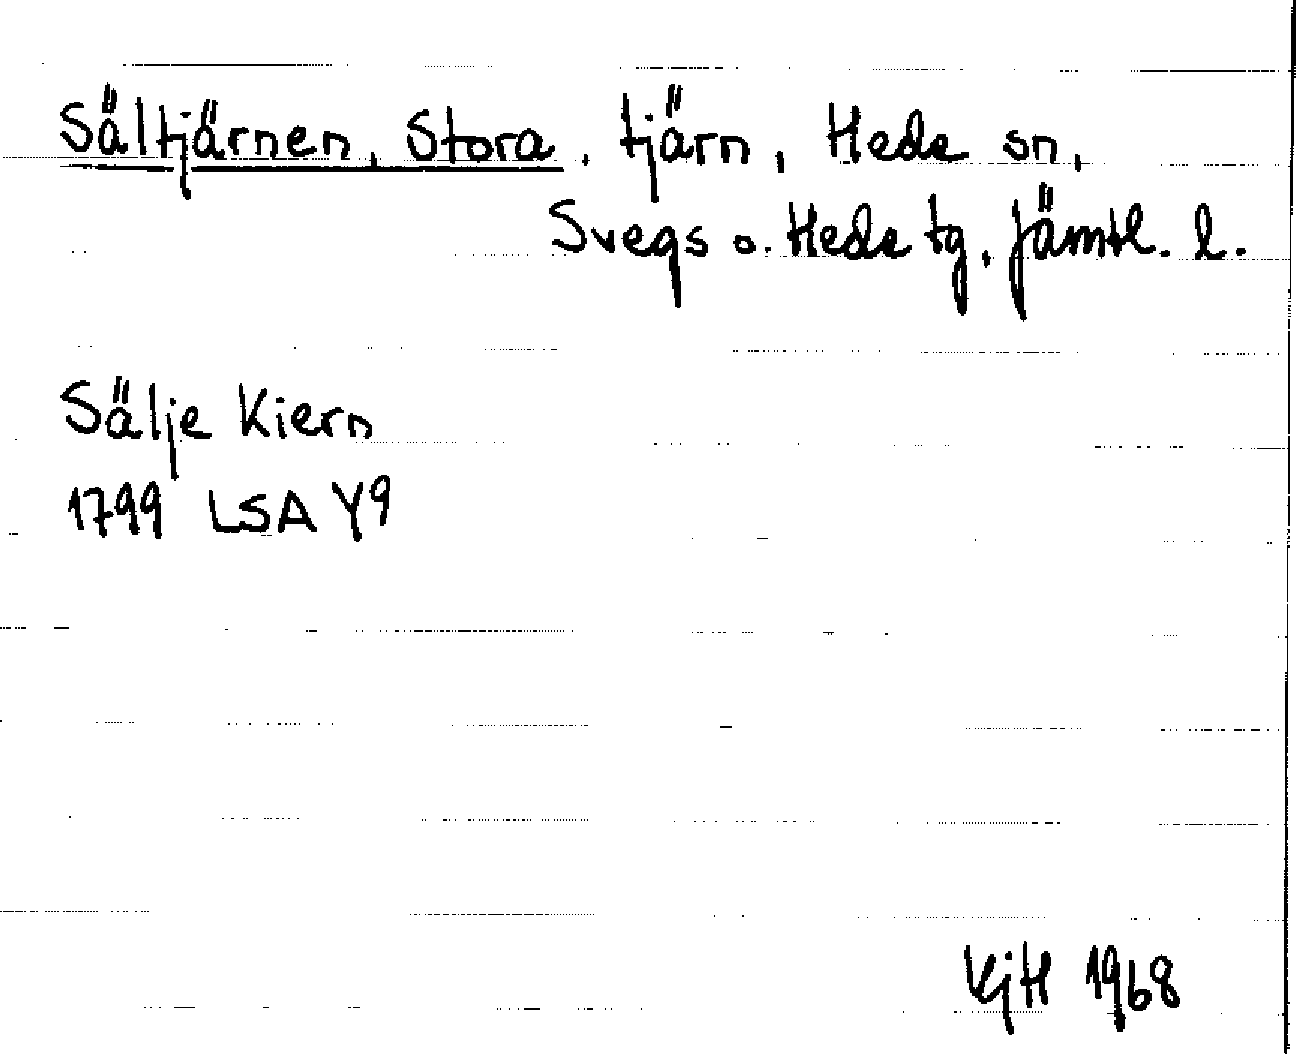 Sältjärnen, Stora, tjärn, Hede sn,
Svegs o. Hede tg, Jämtl. l.
Sälje Kiern
1799 LSA Y9
KjH 1968